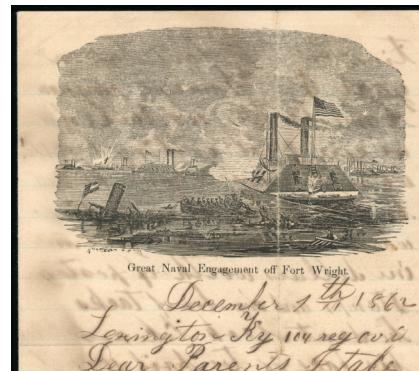 Great Naval Engagement off Fort Wright.
December 1th 1862
Lexington Ky 104 reg ovi
Dear Parents I take